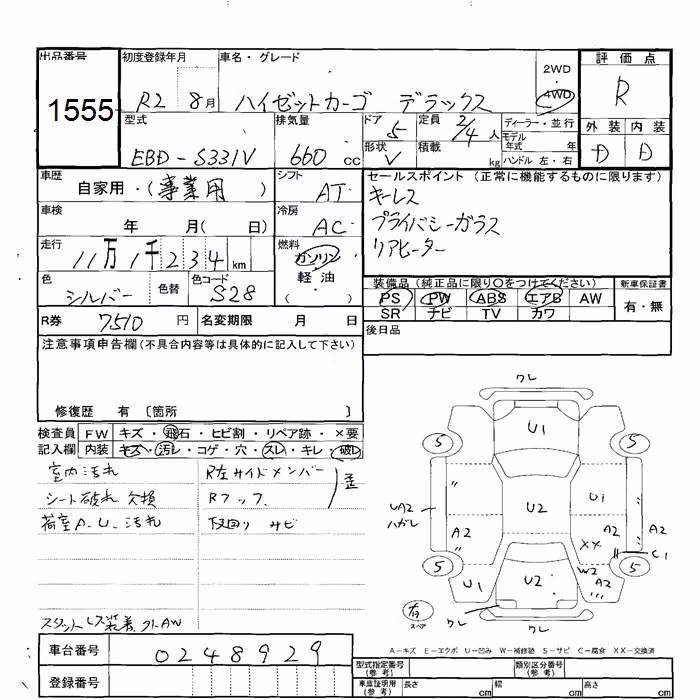 出品番号
1555
初度登録年月
R2 8月
車名・グレード
ハイゼットカーゴ デラックス
2WD
4WD
評価点
R
外装 内装
D D
型式
EBD-S331V
排気量
660 cc
ドア
5
定員
2/4人
形状
V
積載
kg
ディーラー・並行
モデル
年式 年
ハンドル 左・右
車歴
自家用・(事業用 )
シフト
AT
セールスポイント (正常に機能するものに限ります)
キーレス
プライバシーガラス
リアヒーター
車検
年 月( 日)
冷房
AC
走行
11万1千234 km
燃料
ガソリン
軽油
( )
色
シルバー
色替
色コード
S28
装備品(純正品に限り○をつけてください)
PS PW ABS エアB AW
SR ナビ TV カワ
新車保証書
有・無
R券 7510円
名変期限 月 日
後日品
注意事項申告欄(不具合内容等は具体的に記入して下さい)
修復歴 有〔箇所 〕
検査員 FW キズ・飛石・ヒビ割・リペア跡・×要
記入欄 内装 キズ・汚レ・コゲ・穴・スレ・キレ・破レ
室内汚れ
シート破れ 欠損
荷室A.U.汚れ
スタットレス装着 外AW
R左サイドメンバー
Rフック
歪
下回り サビ
ワレ
U1
5 5
UA2
ハガレ
U2
U1
A2
A2
A2
XX
C1
5 5
W2
U1
U2
A2
有
スペア
ワレ
ワレ
A-キズ E-エクボ U-凹み W-補修跡 S-サビ C-腐食 XX-交換済
車台番号
0248929
登録番号
型式指定番号
(参考)
類別区分番号
(参考)
車庫証明用
(参考)
長さ cm 幅 cm 高さ cm